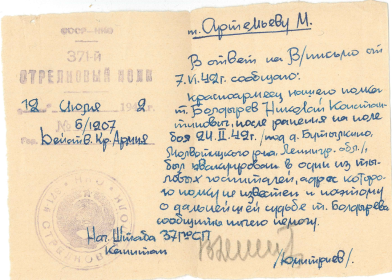 СССР-НКО
371-й
СТРЕЛКОВЫЙ ПОЛК
12 Июля 1942
№ 6/1907
Действ. Кр. Армия
т. Артемьеву М.
В ответ на В/письмо от
7.VI.42г. сообщаю:
красноармеец нашего полка
т. Болдырев Николай Констан
тинович, после ранения на поле
боя 24.II.42г. /под д. Бутылкино,
Молвотицкого р-на. Ленингр. обл./,
был эвакуирован в один из ты-
ловых госпиталей, адрес которо-
го полку не известен и поэтому
о дальнейшей судьбе т. Болдырева
сообщить ничего не могу.
Нач. Штаба 371 СП
Капитан
/Дмитриев/.